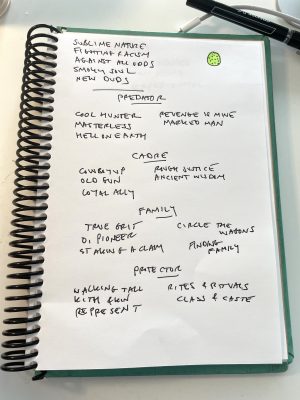 SUBLIME NATURE
FIGHTING RACISM
AGAINST ALL ODDS
SMOKY SOUL
NEW DUDS
PREDATOR
COOL HUNTER REVENGE IS MINE
MASTERLESS MARKED MAN
HELL ON EARTH
CADRE
COWBOY UP ROUGH JUSTICE
OLD GUN ANCIENT WISDOM
LOYAL ALLY
FAMILY
TRUE GRIT CIRCLE THE
PIONEER WAGONS
STAKING A CLAIM FINDING
FAMILY
PROTECTOR
WALKING TALL RITES & RITUALS
KITH & KIN CLASS & CASTE
REPRESENT